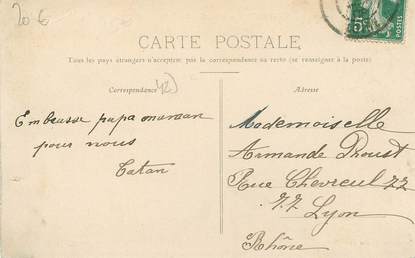 20 €
CARTE POSTALE
Tous les pays étrangers n'acceptent pas la correspondance au recto (se renseigner à la poste)
Correspondance
Adresse
Embrasse papa maman
pour nous
Tatan
Mademoiselle
Armande
Rue Chevreul 77
77 Lyon
Rhône